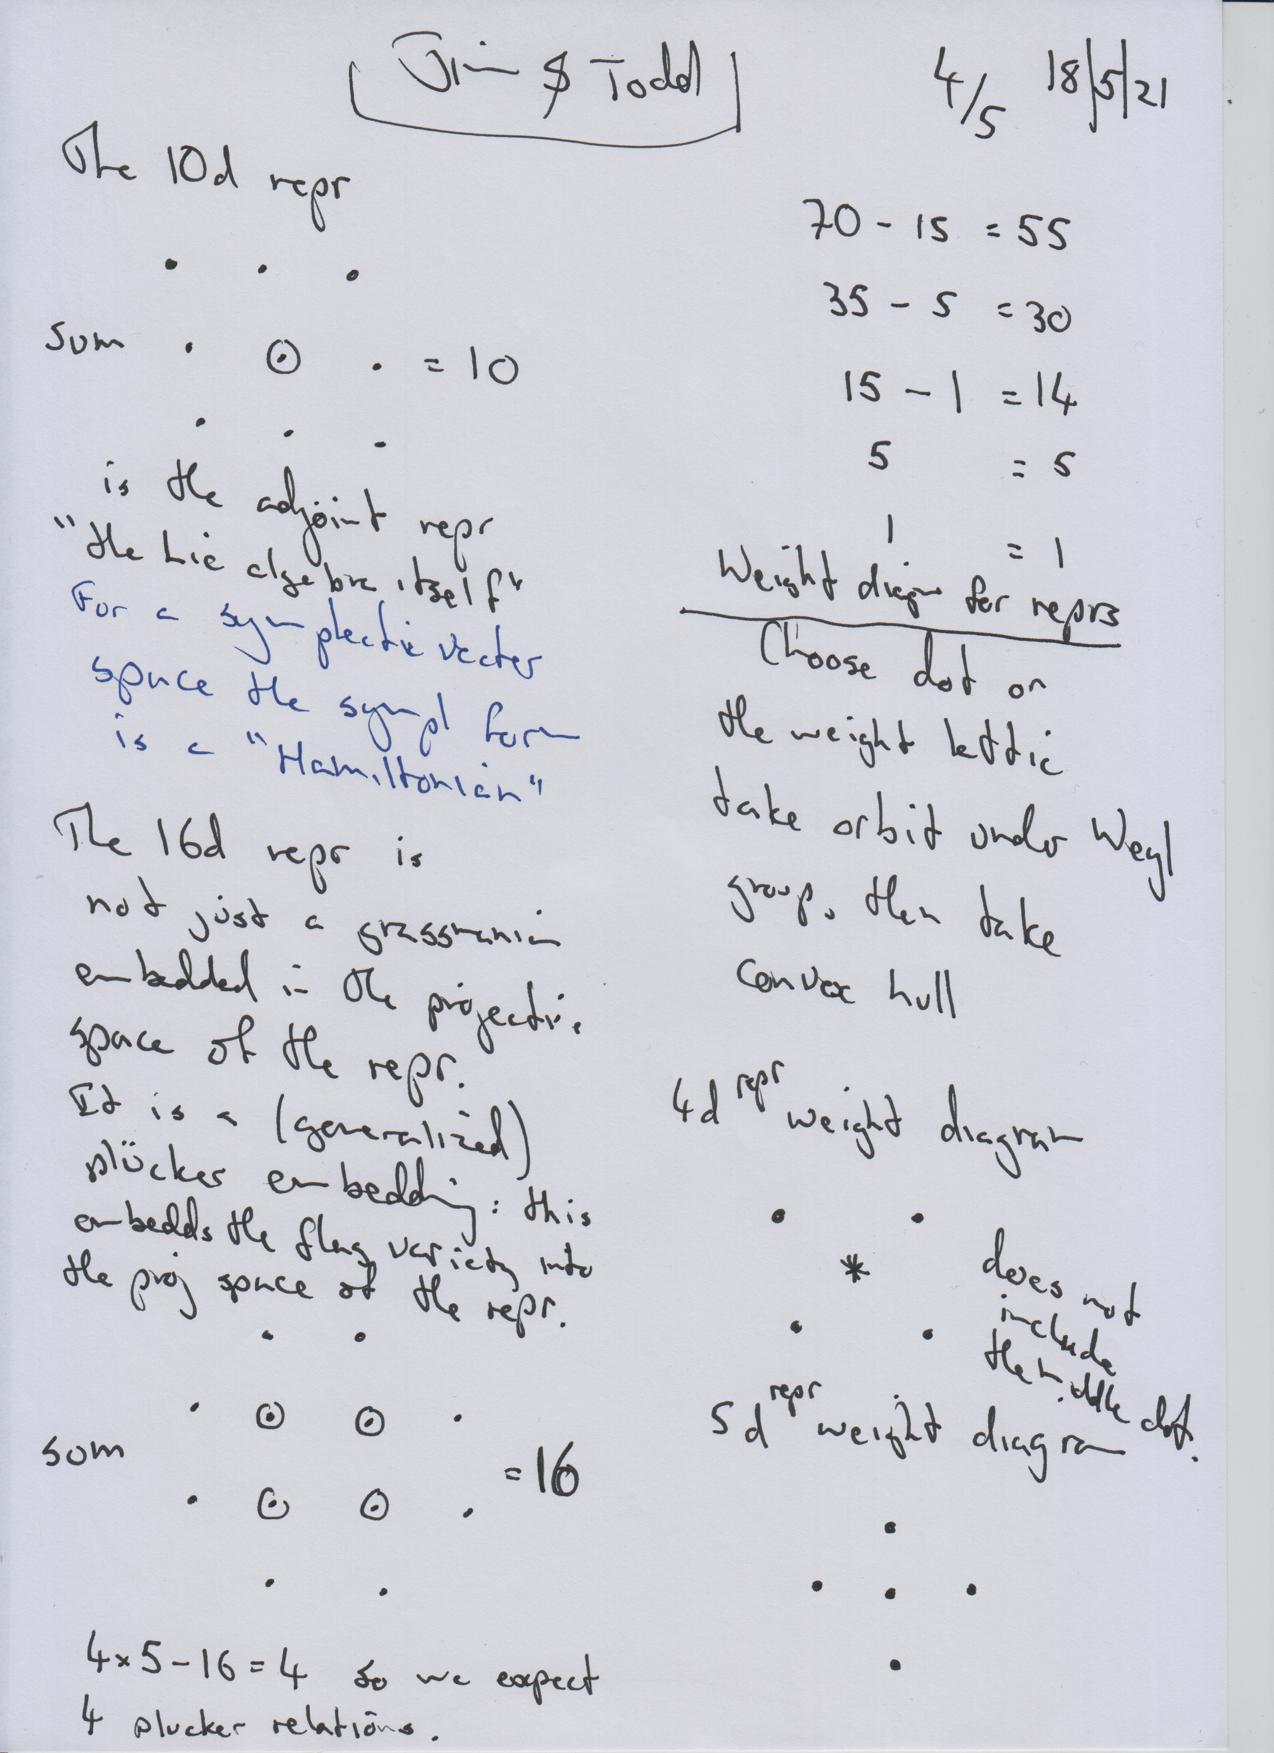 Jim & Todd
4/5 18/5/21
The 10d repr
sum = 10
is the adjoint repr
"the Lie algebra itself"
For a symplectic vector
space the sympl form
is a "Hamiltonian"
The 16d repr is
not just a grassmanian
embedded in the projective
space of the repr.
It is a (generalized)
plücker embedding: this
embedds the flag variety into
the proj space of the repr.
sum = 16
4×5-16=4 so we expect
4 plucker relations.
70 - 15 = 55
35 - 5 = 30
15 - 1 = 14
5 = 5
1 = 1
Weight diagm for reprs
Choose dot on
the weight lattic
take orbit under Weyl
group, then take
convex hull
4d repr weight diagram
*
does not
include
the middle dot.
5d repr weight diagram